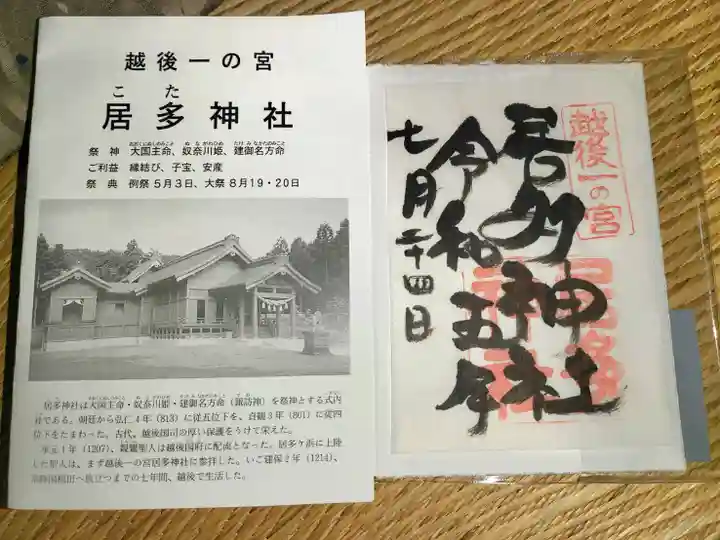 越後一の宮
こた
居多神社
祭神 大国主命、奴奈川姫、建御名方命
ご利益 縁結び、子宝、安産
祭典 例祭5月3日、大祭8月19・20日
居多神社は大国主命・奴奈川姫・建御名方命（諏訪神）を祭神とする式内
社である。朝廷から弘仁4年（813）に従五位下を、貞観3年（861）に従四
位下をたまわった。古代、越後国司の厚い保護をうけて栄えた。
承元1年（1207）、親鸞聖人は越後国府に配流となった。居多ヶ浜に上陸
した聖人は、まず越後一の宮居多神社に参拝した。いご建保2年（1214）、
へ旅立つまでの七年間、越後で生活した。
越後一の宮
居多神社
令和五年
七月二十四日